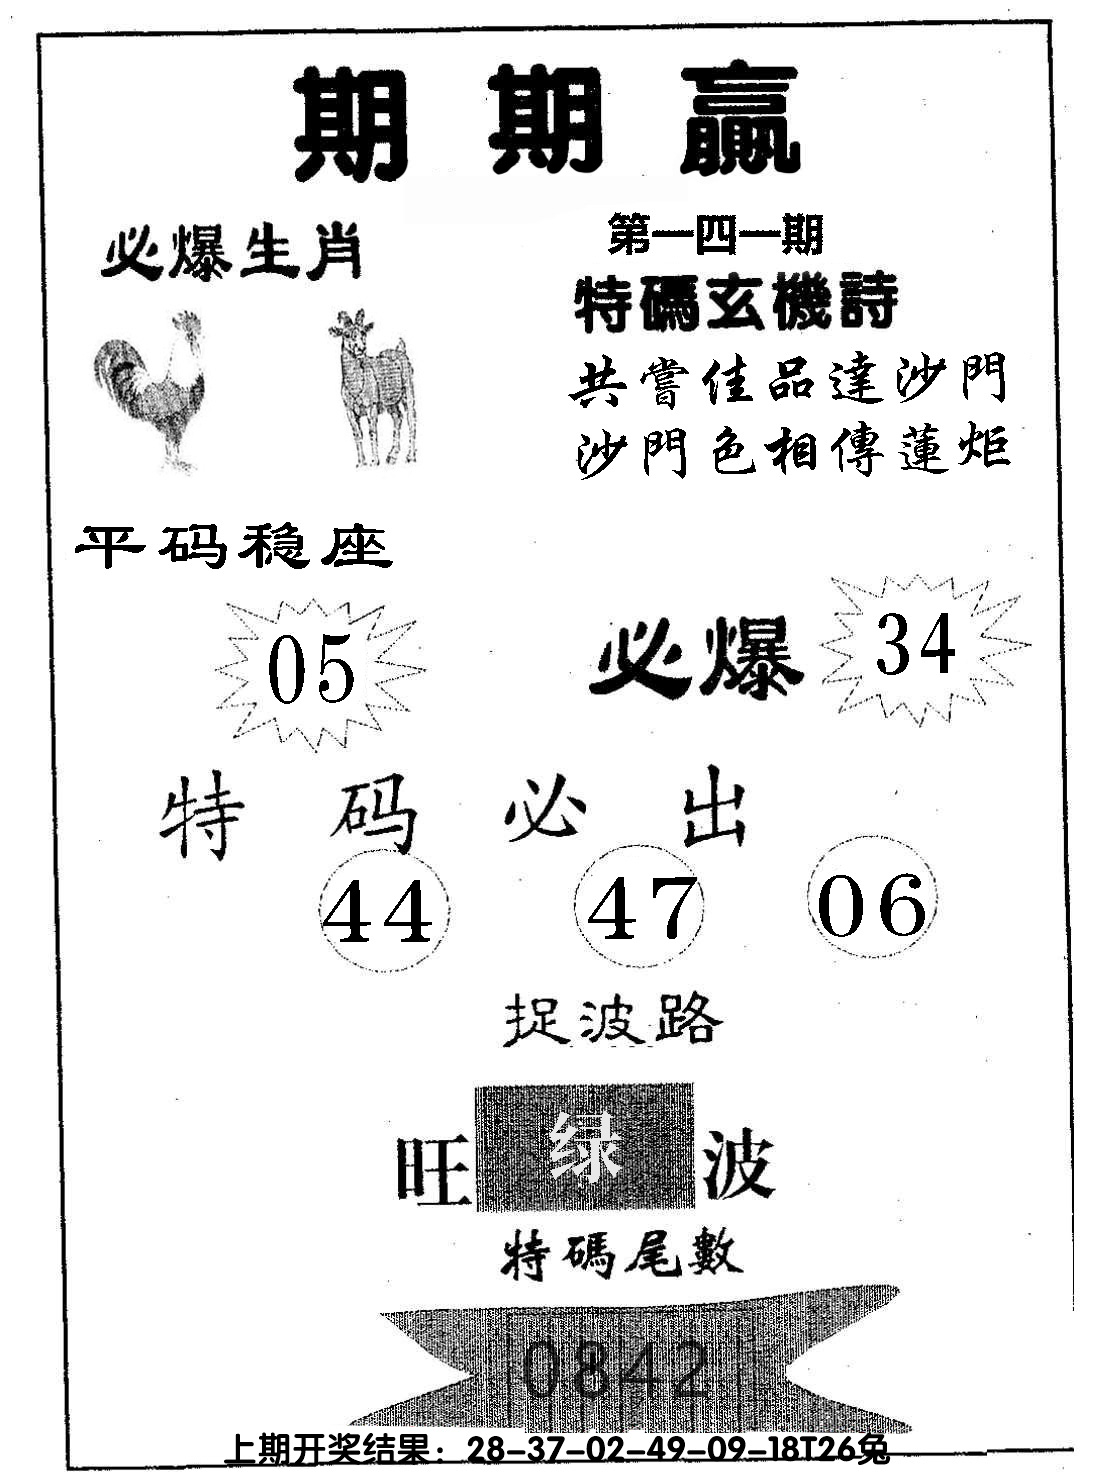 期期赢
必爆生肖
第一四一期
特碼玄機詩
共嘗佳品達沙門
沙門色相傳蓮炬
平码稳座
05
必爆 34
特码必出
44 47 06
捉波路
旺 绿 波
特碼尾數
0842
上期开奖结果：28-37-02-49-09-18T26兔